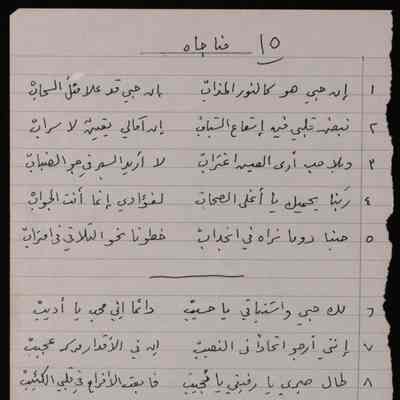 ١٥ مناجاه
١ إن حبي هو كالنور المذاب بان حبي قد علا مثل السحاب
٢ نبض قلبي فيه إشعاع الشباب إن آمالي يقين لا سراب
٣ وبلا حب أرى العيش اغتراب لا أريد السير في جو الضباب
٤ ربنا يحميك يا أغلى الصحاب لفؤادي إنما أنت الجواب
٥ حبنا دوما نراه في انجذاب خطونا نحو التلاقي في اقتراب
٦ لك حبي واشتياقي يا حسيب دائما إني محب يا أديب
٧ إنني أرجو اتحادا في النصيب إن في الأقدار عجيب
٨ طال صبري يا رفيقي يا مجيب فابعث الأفراح في قلبي الكئيب